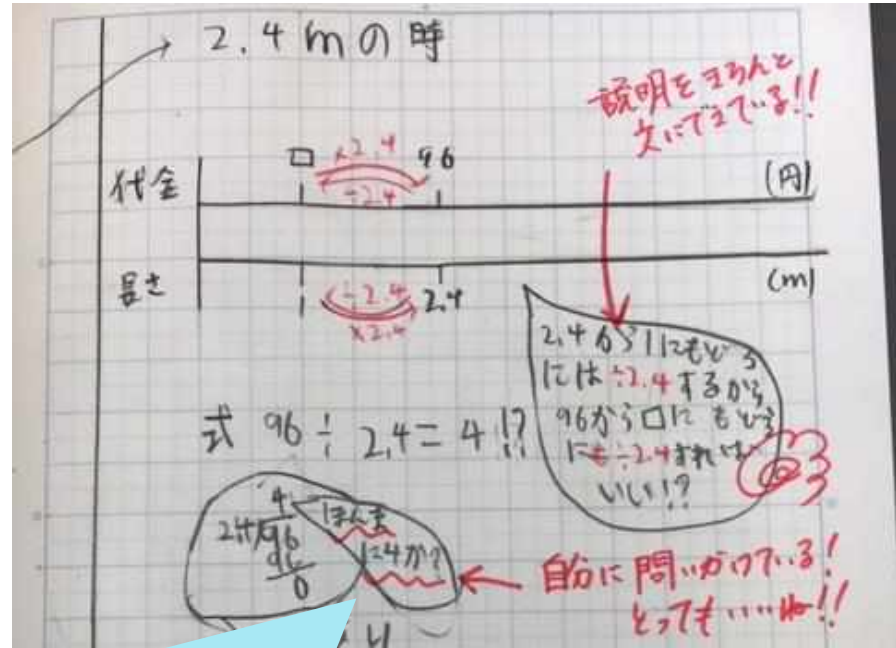 2.4mの時
説明をきちんと
文にできている!!
□ ×2.4 96
÷2.4
代金
(円)
長さ
(m)
1 ÷2.4 2.4
×2.4
2.4から1にもどる
には÷2.4するから
96から□にもどる
にも÷2.4すれば
いい!?
式 96÷2.4=4!?
4
2.4)96
96
0
ほんま
に4か?
自分に問いかけている!
とってもいいね!!